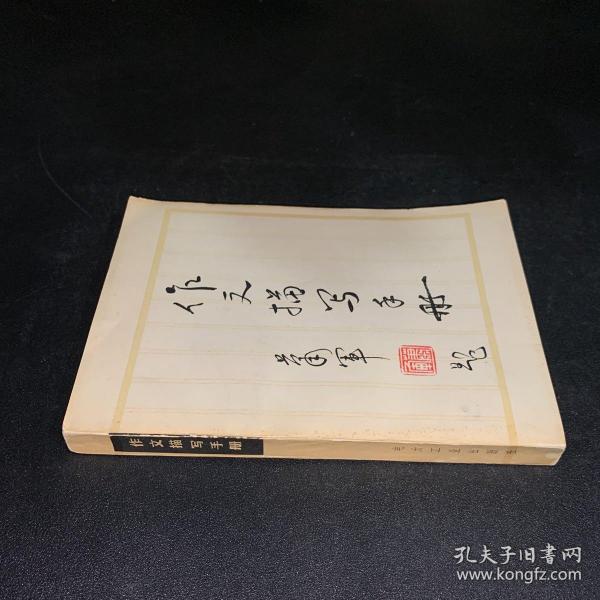 作文描写手册
萧军 题
作文描写手册
孔夫子旧书网
www.kongfz.com